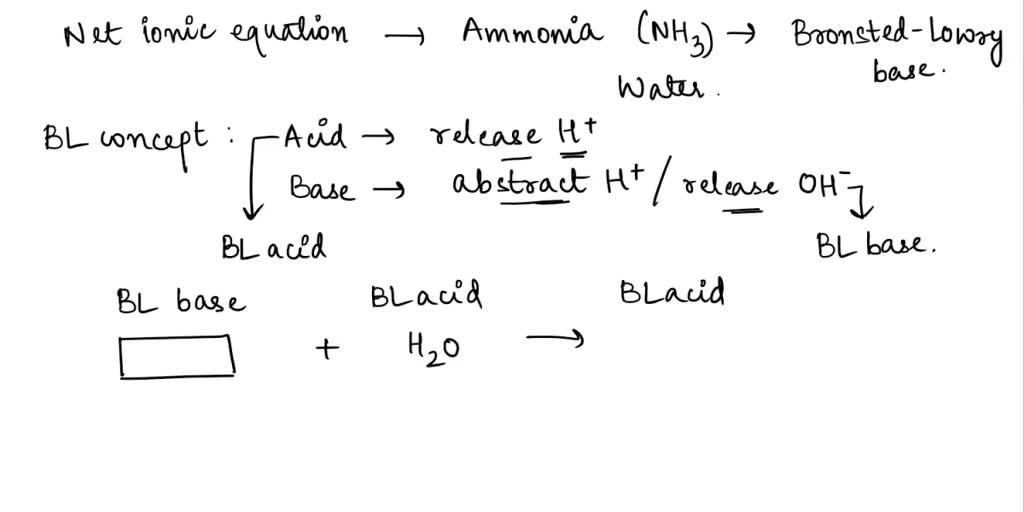 Net ionic equation → Ammonia (NH₃) → Bronsted-Lowry
base.
Water.
BL concept : Acid → release H⁺
Base → abstract H⁺ / release OH⁻
BL acid
BL base.
BL base BL acid BL acid
+ H₂O →